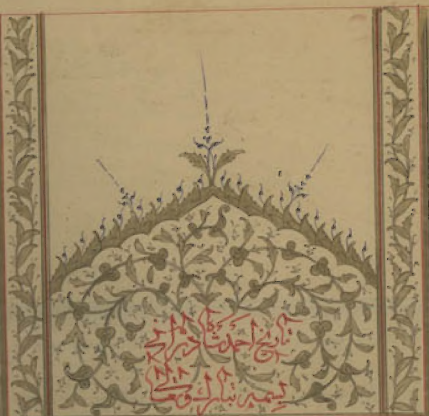 تاریخ احمد شاه درانی
بسمه تبارک وتعالی